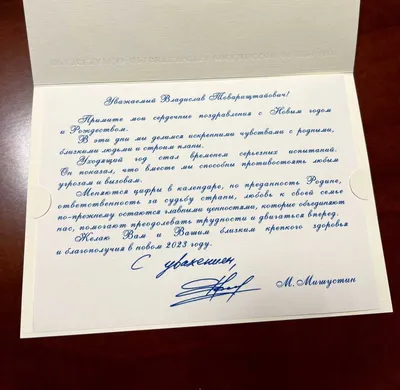 Уважаемый Владислав Товарищтайович!
Примите мои сердечные поздравления с Новым годом
и Рождеством.
В эти дни мы делимся искренними чувствами с родными,
близкими людьми и строим планы.
Уходящий год стал временем серьезных испытаний.
Он показал, что вместе мы способны противостоять любым
угрозам и вызовам.
Меняются цифры в календаре, но преданность Родине,
ответственность за судьбу страны, любовь к своей семье
по-прежнему остаются главными ценностями, которые объединяют
нас, помогают преодолевать трудности и двигаться вперед.
Желаю Вам и Вашим близким крепкого здоровья
и благополучия в новом 2023 году.
С уважением,
М. Мишустин